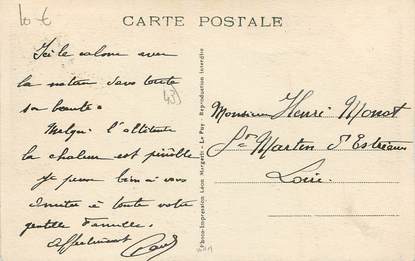 10 €
CARTE POSTALE
Ici le calme avec
la nature dans toute
sa beauté.
43
Malgré l'altitude
la chaleur est pénible
Je pense bien à vous
à toute votre
gentille famille.
Affectueusement
Photo-Impression Léon Margerit - Le Puy - Reproduction Interdite
Monsieur Henri Monot
St Martin d'Estréaux
Loire.